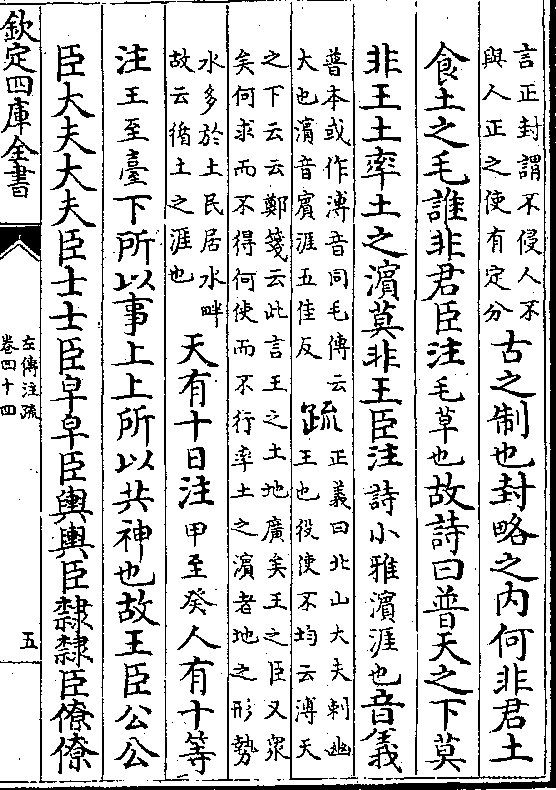 言正封謂不侵人不
與人正之使有定分
古之制也封略之内何非君土
食土之毛誰非君臣注毛草也故詩曰普天之下莫
非王土率土之濱莫非王臣注詩小雅濱涯也音義
普本或作溥音同毛傳云
大也濱音賓涯五佳反
疏
正義曰北山大夫刺幽
王也役使不均云溥天
之下云云鄭箋云此言王之土地廣矣王之臣又衆
矣何求而不得何使而不行率土之濱者地之形勢
水多於土民居水畔
故云循土之涯也
天有十日注甲至癸人有十等
注王至臺下所以事上上所以共神也故王臣公公
臣大夫大夫臣士士臣皁皁臣輿輿臣隸隸臣僚僚
欽定四庫全書
左傳注疏
卷四十四
五